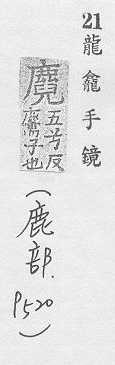 21 龍龕手鏡
五兮反
鹿子也
(鹿部. P520)